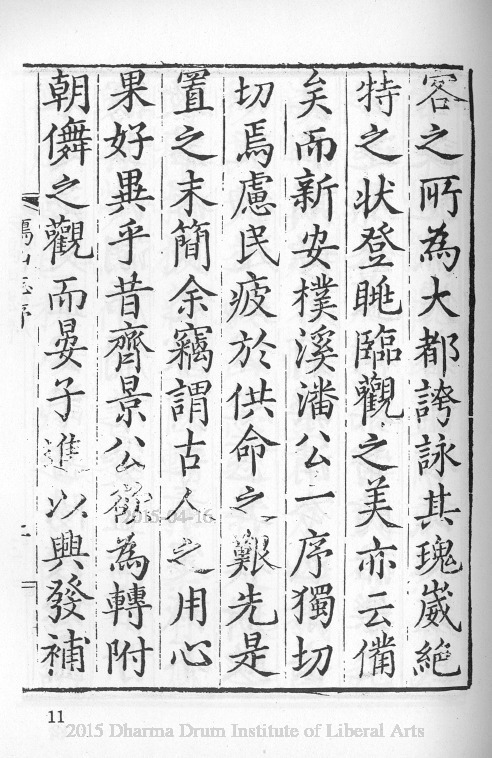 客之所為大都誇詠其瑰崴絕
特之狀登眺臨觀之美亦云備
矣而新安樸溪潘公一序獨切
切焉慮民疲於供命之艱先是
置之末簡余竊謂古人之用心
果好異乎昔齊景公欲為轉附
朝儛之觀而晏子進以興發補
2015-04-16
11
2015 Dharma Drum Institute of Liberal Arts